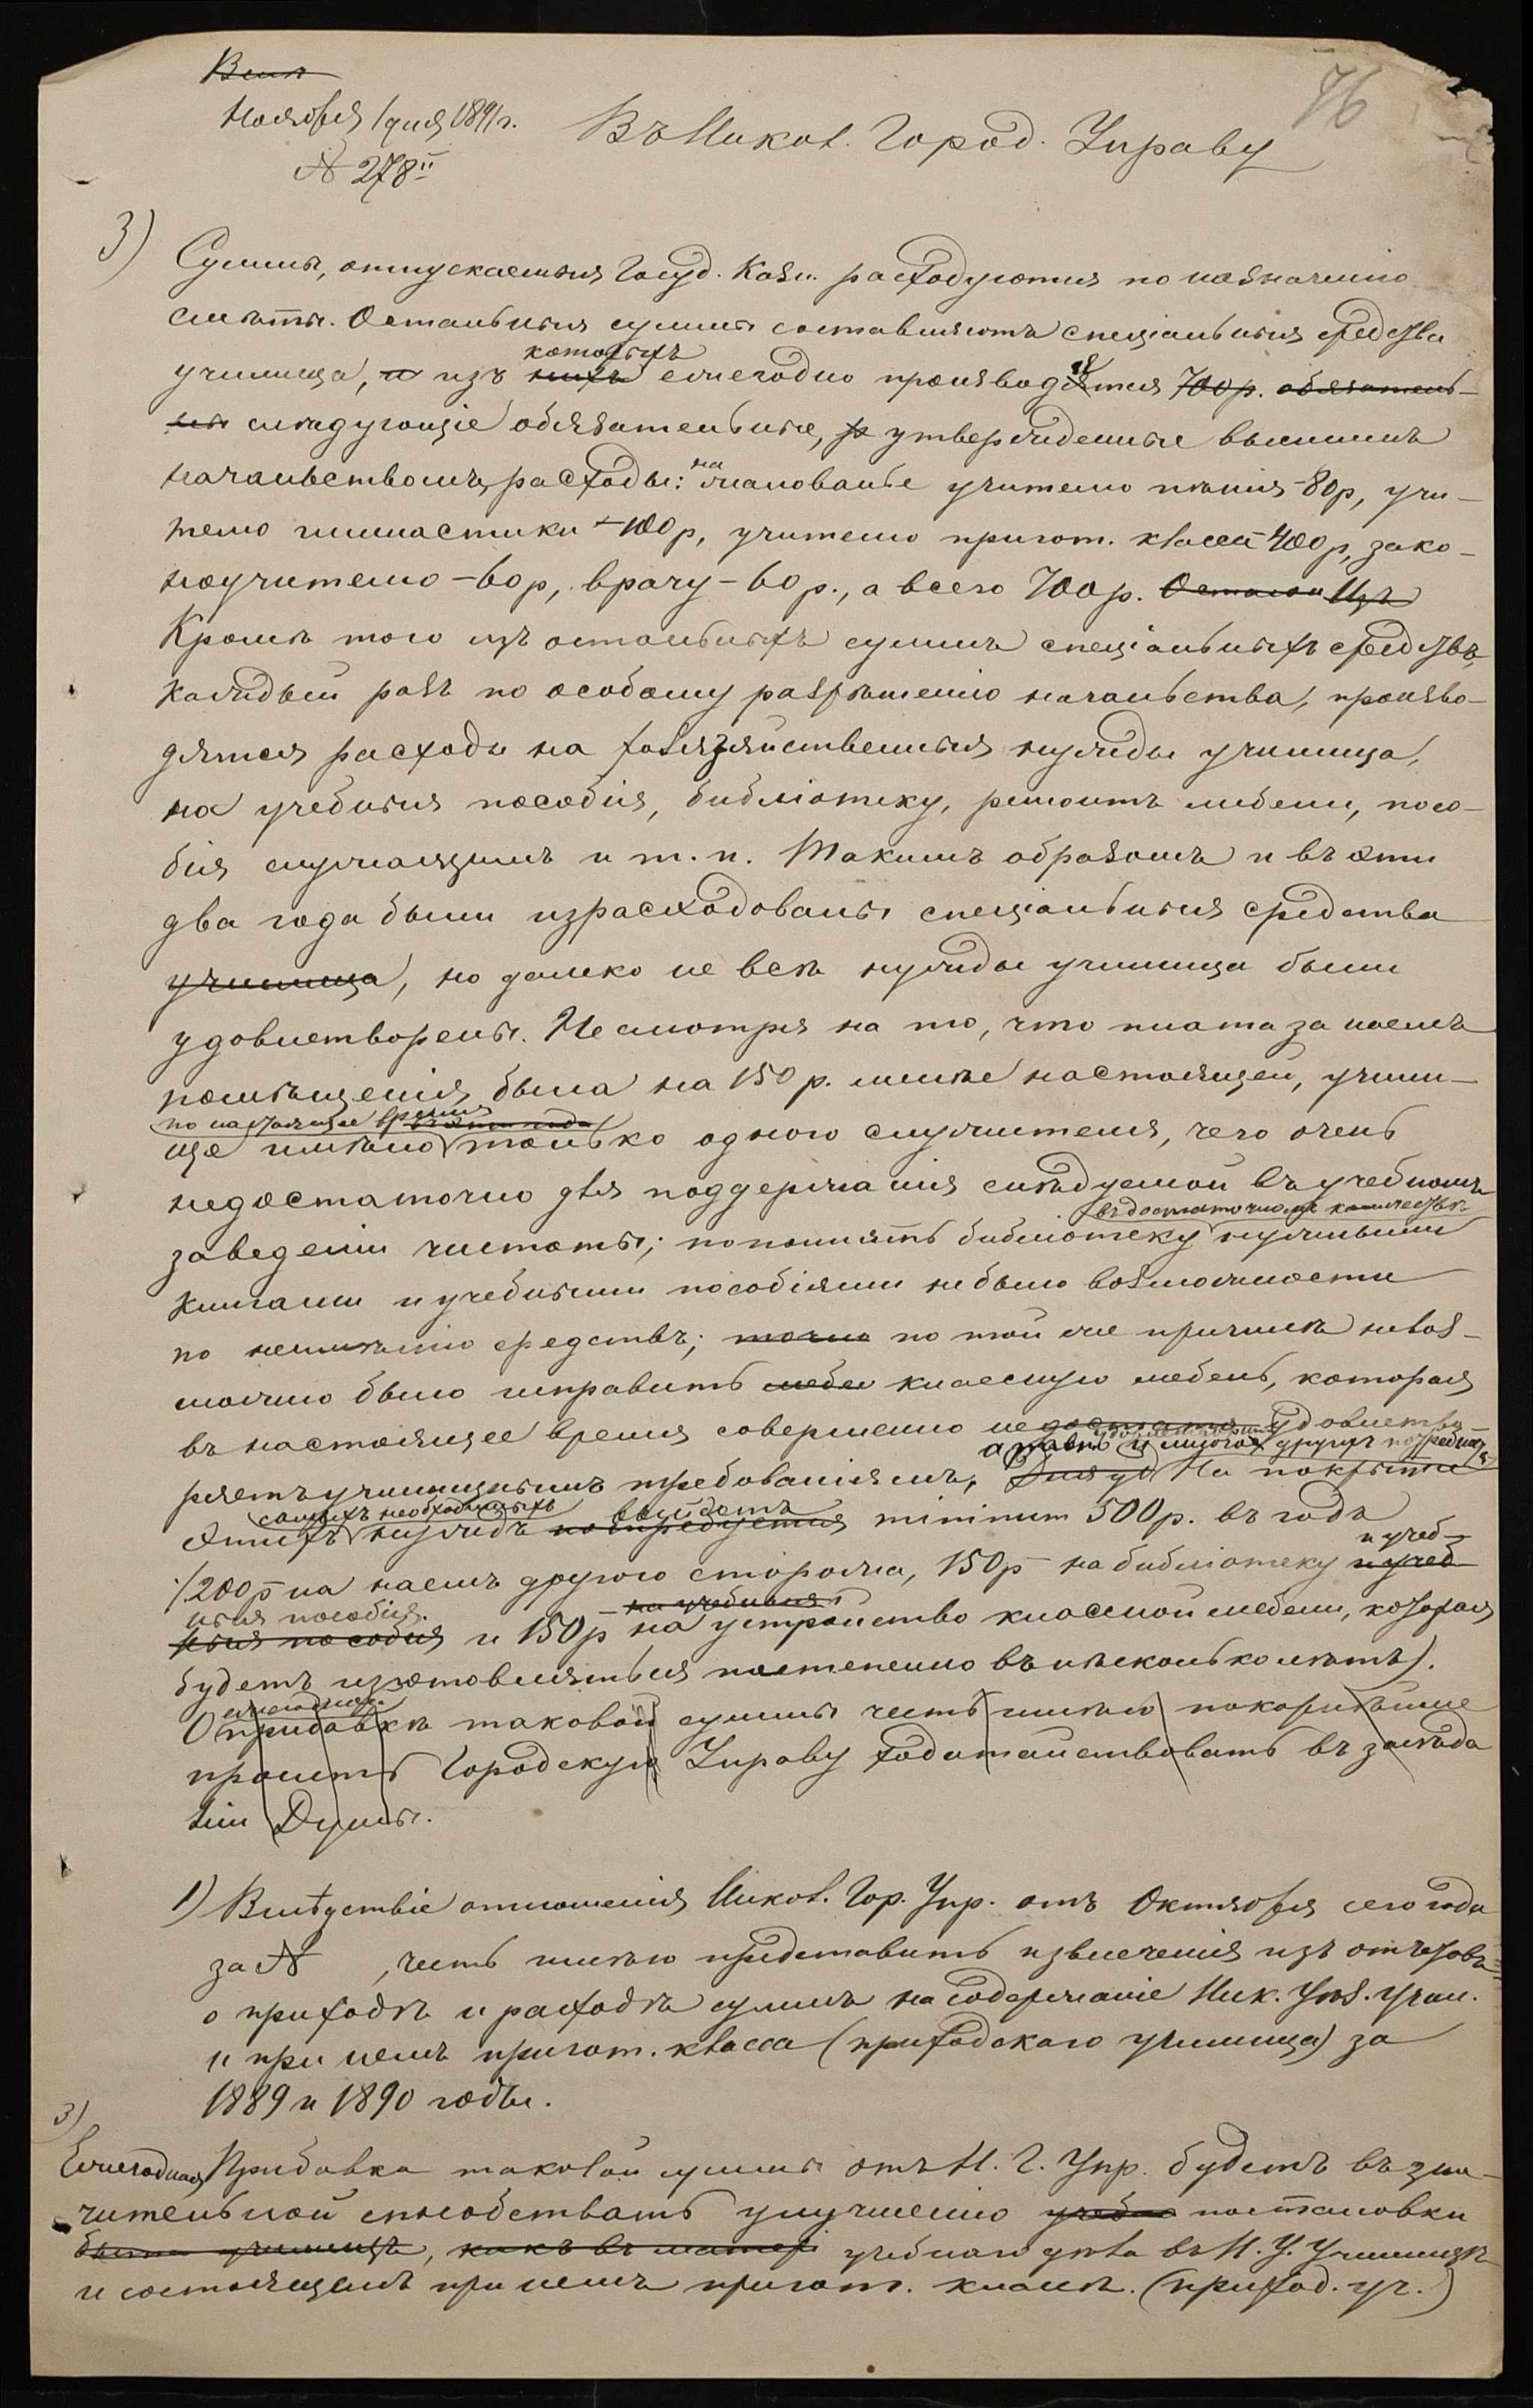 Вслѣ
Ноября 1 дня 1891 г.
№ 278
76
Въ Никол. Город. Управу
3) Суммы, отпускаемыя Госуд. Казн. расходуются по назначенію
смѣты. Остальныя суммы составляютъ спеціальныя средства
которыхъ
училища, и изъ нихъ ежегодно производятся 700 р. обязатель-
ны слѣдующіе обязательные, утвержденные высшимъ
начальствомъ, расходы: на жалованье учителю пѣнія – 80 р, учи-
телю гимнастики – 100 р, учителю пригот. класса – 400 р, зако-
ноучителю – 60 р, врачу – 60 р., а всего 700 р. Остальн Изъ
Кромѣ того изъ остальныхъ суммъ спеціальныхъ средствъ,
каждый разъ по особому разрѣшенію начальства, произво-
дятся расходы на хозяйственныя нужды училища,
на учебныя пособія, библіотеку, ремонтъ мебели, посо-
бія служащимъ и т. п. Такимъ образомъ и въ эти
два года были израсходованы спеціальныя средства
училища, но далеко не всѣ нужды училища были
удовлетворены. Не смотря на то, что плата за наемъ
помѣщенія была на 150 р. менѣе настоящей, учили-
по настоящее время въ эти года
ще имѣло только одного служителя, чего очень
недостаточно для поддержанія слѣдуемой въ учебномъ
въ достаточномъ количествѣ
заведеніи чистоты; пополнять библіотеку нужными
книгами и учебными пособіями не было возможности
по неимѣнію средствъ; точно по той же причинѣ невоз-
можно было исправить мебел классную мебель, которая
въ настоящее время совершенно не достаточ удовлетво-
а равно и многое другихъ потребностей
ряетъ училищнымъ требованіямъ, Для уд На покрытіе
самыхъ необходимыхъ
этихъ нуждъ потребуется minimum 500 р. въ годъ
и учеб-
/200 р на наемъ другого сторожа, 150 р – на библіотеку и учеб
ныя пособія. – на учебныя
ныя пособія и 150 р на устройство классной мебели, которая
будетъ изготовляться постепенно въ нѣсколько лѣтъ).
ежегодной
О прибавкѣ таковой суммы честь имѣю покорнѣйше
просить Городскую Управу ходатайствовать въ засѣда
ніи Думы.
1) Вслѣдствіе отношенія Никол. Гор. Упр. отъ Октября сего года
за № , честь имѣю представить извлеченія изъ отчетовъ
о приходѣ и расходѣ суммъ на содержаніе Ник. Уѣз. Учил.
и при немъ пригот. класса (приходскаго училища) за
1889 и 1890 годы.
3)
Ежегодная Прибавка таковой суммы отъ Н. Г. Упр. будетъ въ зна-
чительной способствать улучшенію учебно постановки
быта училища, какъ въ матер учебнаго дѣла въ Н. У. Училищѣ
и состоящемъ при немъ пригот. классѣ. (приход. уч.)